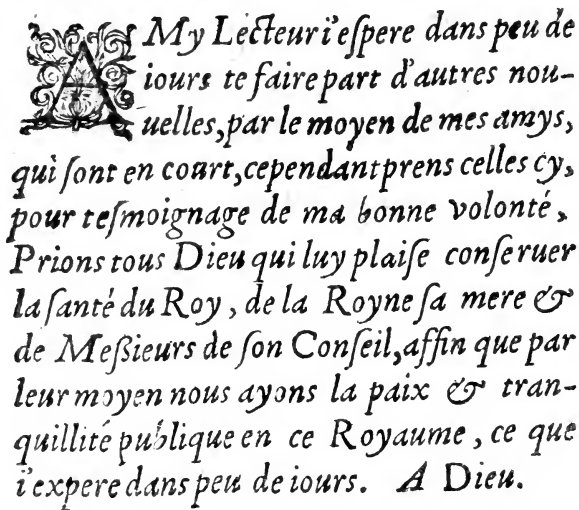 AMy Lecteur i'eſpere dans peu de
iours te faire part d'autres nou-
uelles, par le moyen de mes amys,
qui ſont en court, cependant prens celles cy,
pour teſmoignage de ma bonne volonté,
Prions tous Dieu qui luy plaiſe conſeruer
la ſanté du Roy, de la Royne ſa mere &
de Meßieurs de ſon Conſeil, affin que par
leur moyen nous ayons la paix & tran-
quillité publique en ce Royaume, ce que
i'expere dans peu de iours. A Dieu.